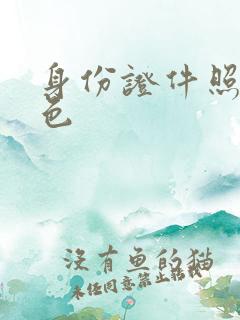 身份證件照
色
沒有魚的猫
未经同意禁止转载